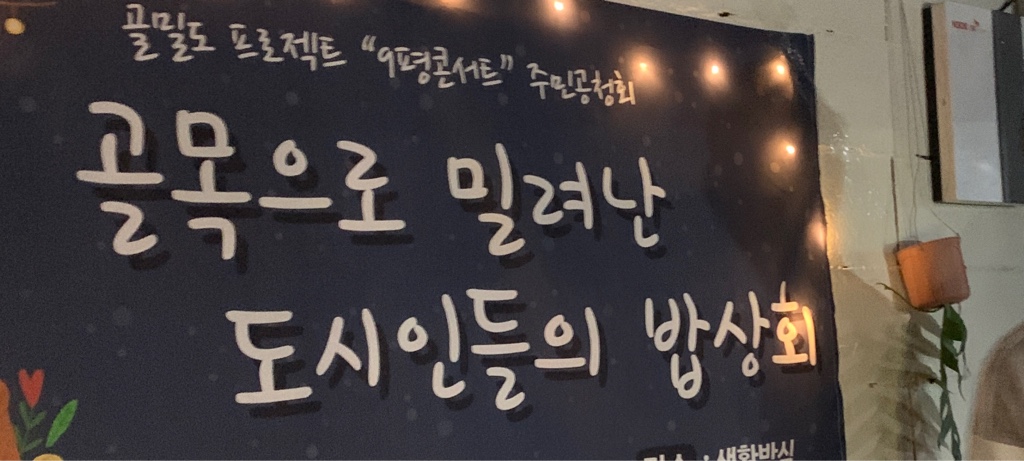 골밀도 프로젝트 "9평콘서트" 주민공청회
골목으로 밀려난
도시인들의 밥상회